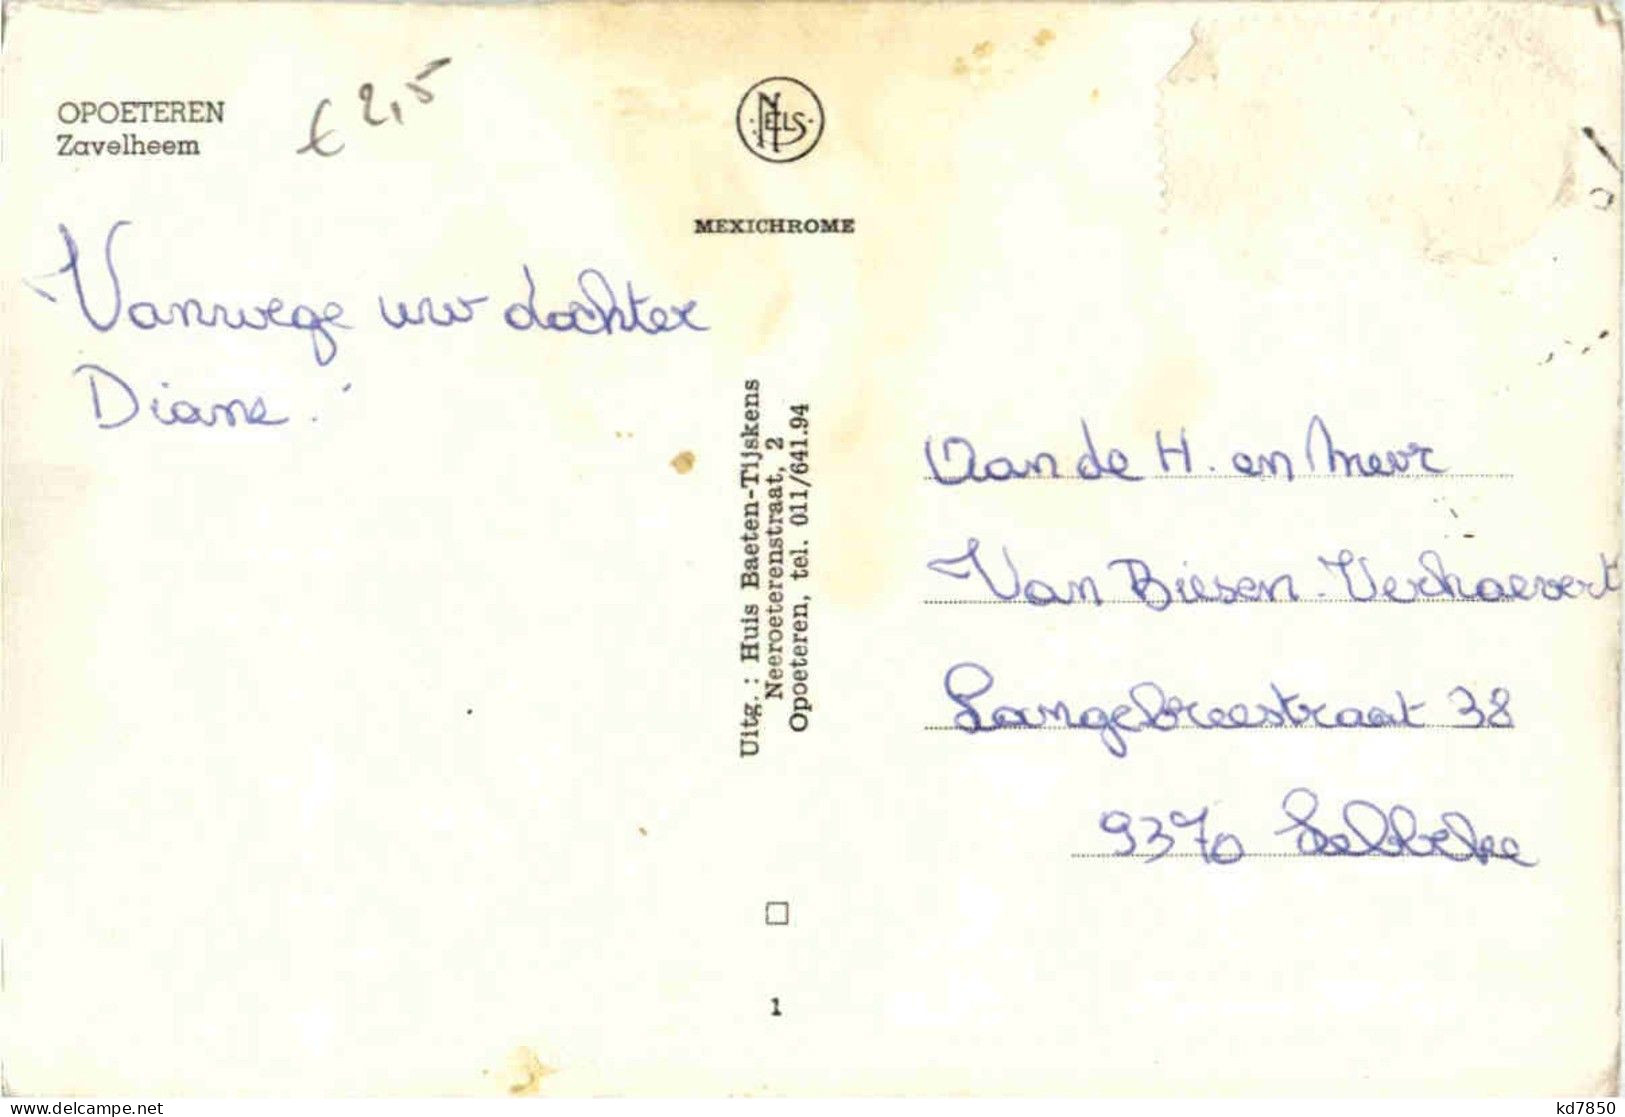 OPOETEREN
Zavelheem
€ 2,5
NELS
MEXICHROME
Vanwege uw dochter
Diane.
Uitg. : Huis Baeten-Tijskens
Neeroeterenstraat, 2
Opoeteren, tel. 011/641.94
Aan de H. en Mevr
Van Biesen-Verhaevert
Langebreestraat 38
9370 Lebbeke
1
delcampe.net
kd7850